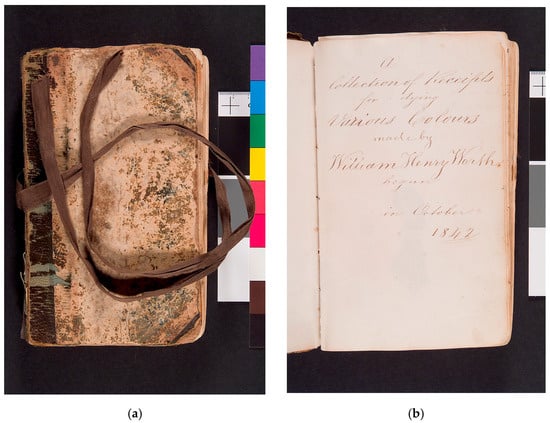 A
Collection of Receipts
for dying
Various Colours
made by
William Henry Worth,
begun
in October
1842
(a)
(b)